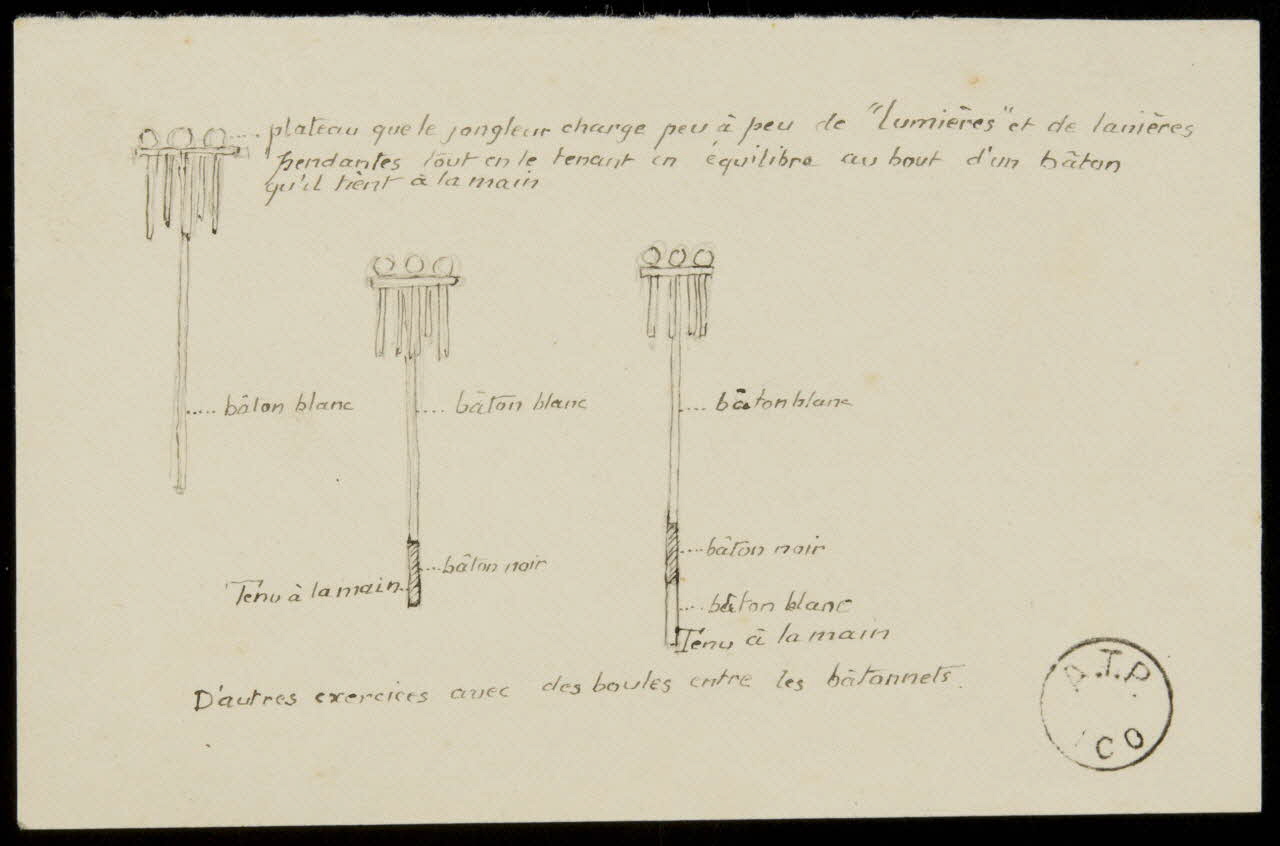 plateau que le jongleur charge peu à peu de "lumières" et de lanières
pendantes tout en le tenant en équilibre au bout d'un bâton
qu'il tient à la main
bâton blanc
bâton blanc
bâton blanc
bâton noir
Tenu à la main
bâton noir
bâton blanc
Tenu à la main
D'autres exercices avec des boules entre les bâtonnets.
A.T.P.
ICO